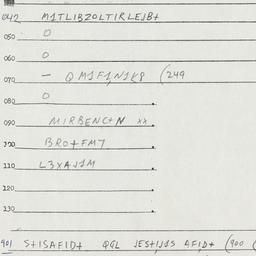 042 M1TLIBZOLTIRLEJB+
050 O
060 O
070 — QM1F1N1K8 (249
080 O
090 MIRBENC+N xx
100 BRO+FM7
110 L3XAJ1M
120
130
901 S+ISAFID+ QGL JES+IJ1S AFID+ (900 (